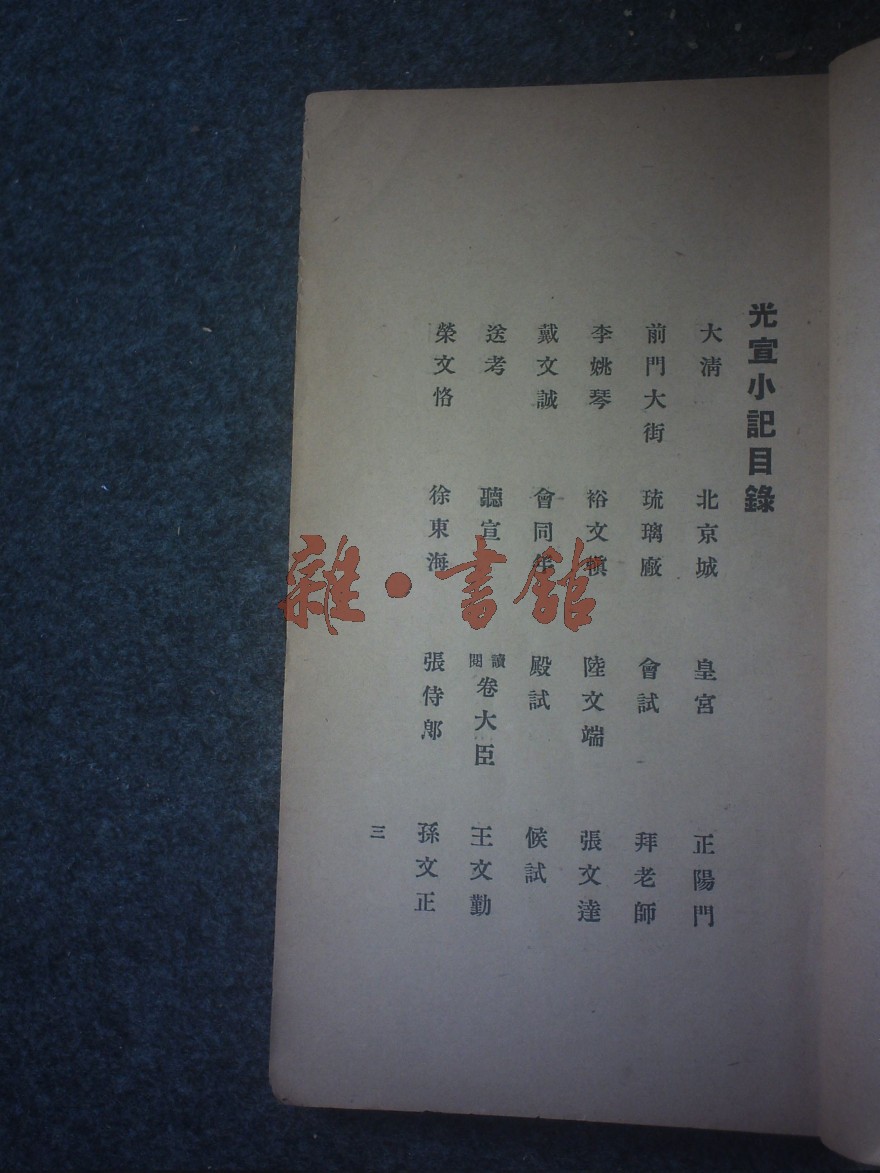 光宣小記目錄
大清 北京城 皇宮 正陽門
前門大街 琉璃廠 會試 拜老師
李姚琴 裕文 陸文端 張文達
戴文誠 會同年 殿試 候試
送考 聽宣 讀閱卷大臣 王文勤
榮文恪 徐東海 張侍郎 孫文正
三
雜·書館